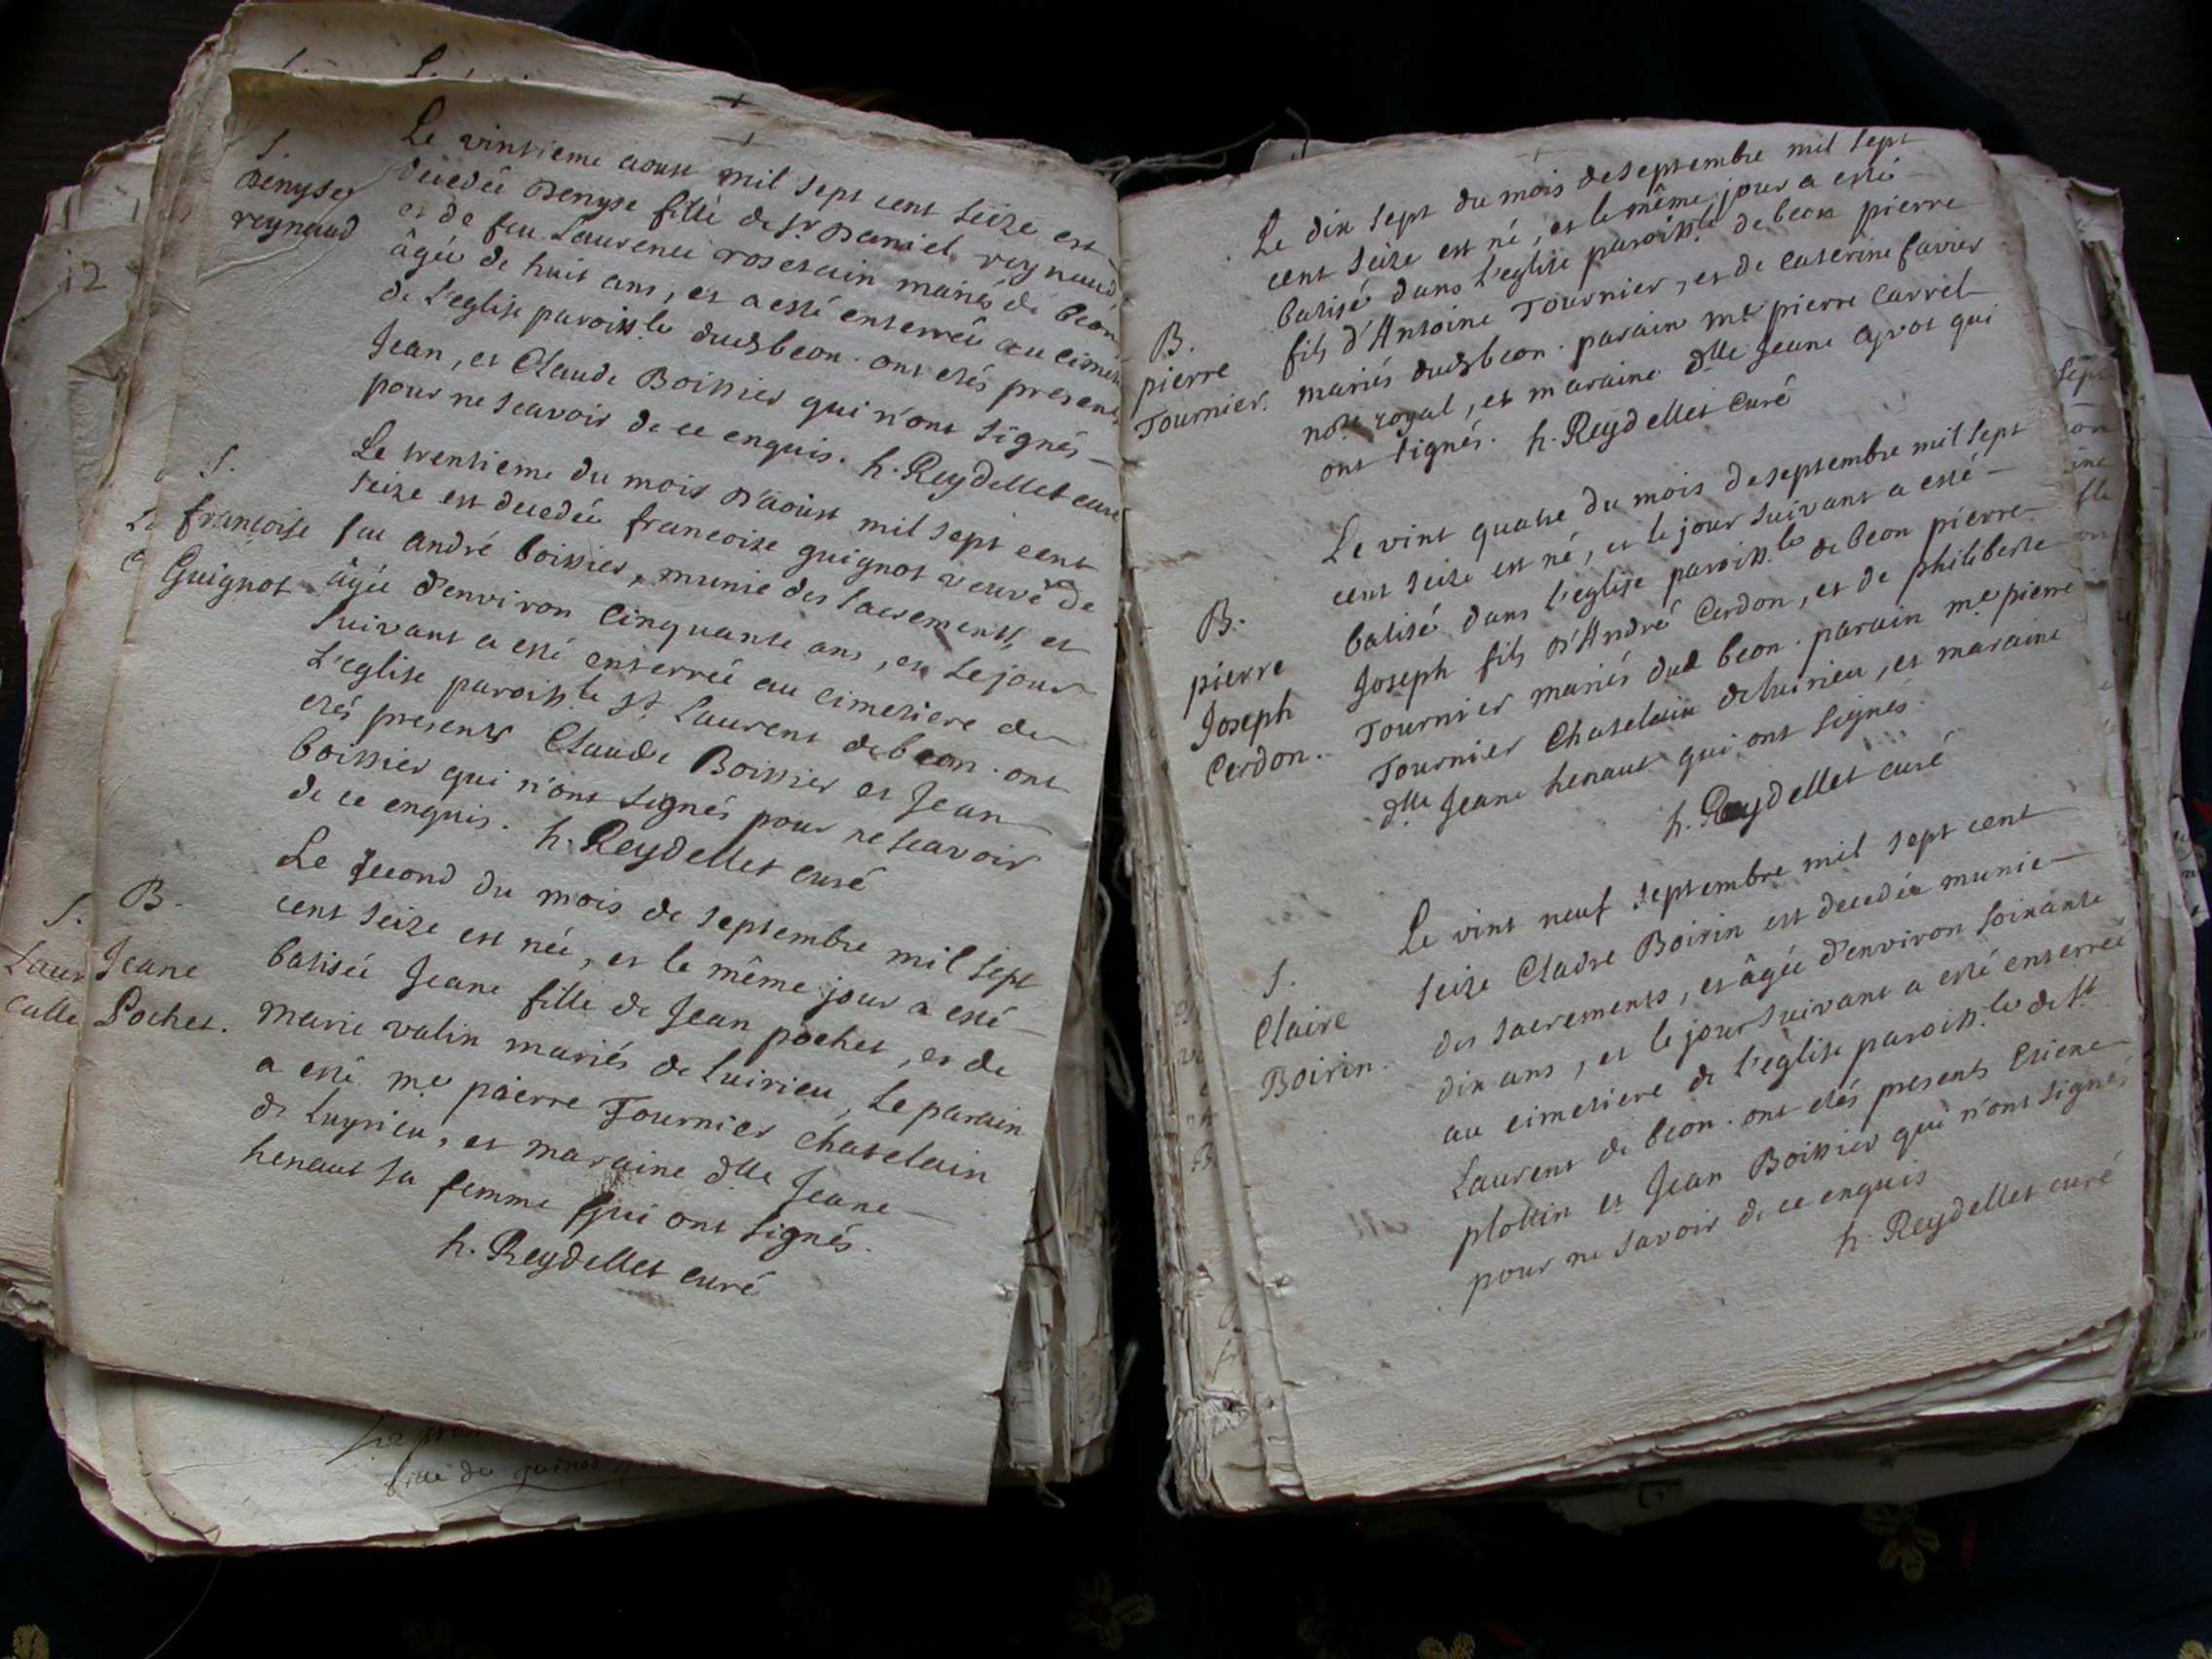 S.
Denyse
reynaud
Le vintieme aoust mil sept cent seize est
decedée Denyse fille de Sr Daniel reynaud
et de feu Laurence rosetain mariés de beon
âgée de huit ans, et a esté enterrée au cimeti
de L'eglise paroiss.le dud beon. ont etés presents
Jean, et Claude Boissier qui n'ont signés
pour ne scavoir de ce enquis. h. Reydellet curé
S.
francoise
Guignot
Le trentieme du mois d'aoust mil sept cent
seize est decedée francoise guignot veuve de
feu andré boissier, munie des sacrements, et
âgée d'environ Cinquante ans, et le jour
suivant a esté enterrée au cimetiere de
L'eglise paroiss.le St Laurent de beon. ont
etés presents Claude Boissier et Jean
boissier qui n'ont signés pour ne scavoir
de ce enquis. h. Reydellet curé
B.
Jeane
Pochet.
Le second du mois de septembre mil sept
cent seize est née, et le même jour a esté
batisée Jeane fille de Jean pochet, et de
marie valin mariés de luirieu, Le parain
a esté me pierre Tournier chatelain
de luyrieu, et maraine dlle Jeane
henaut sa femme qui ont signés.
h. Reydellet curé
B.
pierre
Tournier.
Le dix sept du mois de septembre mil sept
cent seize est né, et le même jour a esté
batisé dans l'eglise paroiss.le de beon pierre
fils d'Antoine Tournier, et de caterine favier
mariés dud beon. parain me pierre Carrel
note royal, et maraine dlle Jeane ayrot qui
ont signés. h. Reydellet curé
B.
pierre
Joseph
Cerdon.
Le vint quatre du mois de septembre mil sept
cent seize est né, et le jour suivant a esté
batisé dans l'eglise paroiss.le de beon pierre
Joseph fils d'André Cerdon, et de philiberte
Tournier mariés dud beon. parain me pierre
Tournier Chatelain de luirieu, et maraine
dlle Jeane henaut qui ont signés.
h. Reydellet curé
S.
Claire
Boirin.
Le vint neuf septembre mil sept cent
seize Claire Boirin est decedée munie
des sacrements, et âgée d'environ soixante
dix ans, et le jour suivant a esté enterrée
au cimetiere de l'eglise paroiss.le de St
Laurent de beon. ont etés presents Etiene
plottin et Jean Boissier qui n'ont signés
pour ne savoir de ce enquis
h. Reydellet curé